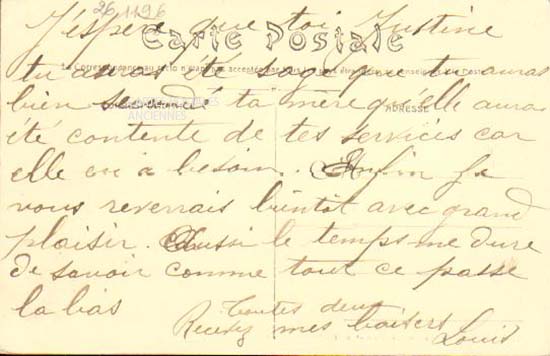 26/1196
J'espère que toi Justine
Carte Postale
La Correspondance au recto n'étant pas acceptée par tous les pays
tu auras été sage que tu auras
bien secondé ta mère qu'elle aura
CARTES POSTALES
ANCIENNES
ADRESSE
été contente de tes services car
elle en a besoin. Enfin je
vous reverrais bientôt avec grand
plaisir. Aussi le temps me dure
de savoir comme tout ce passe
la bas
Toutes deux
Recevez mes baisers
Louis